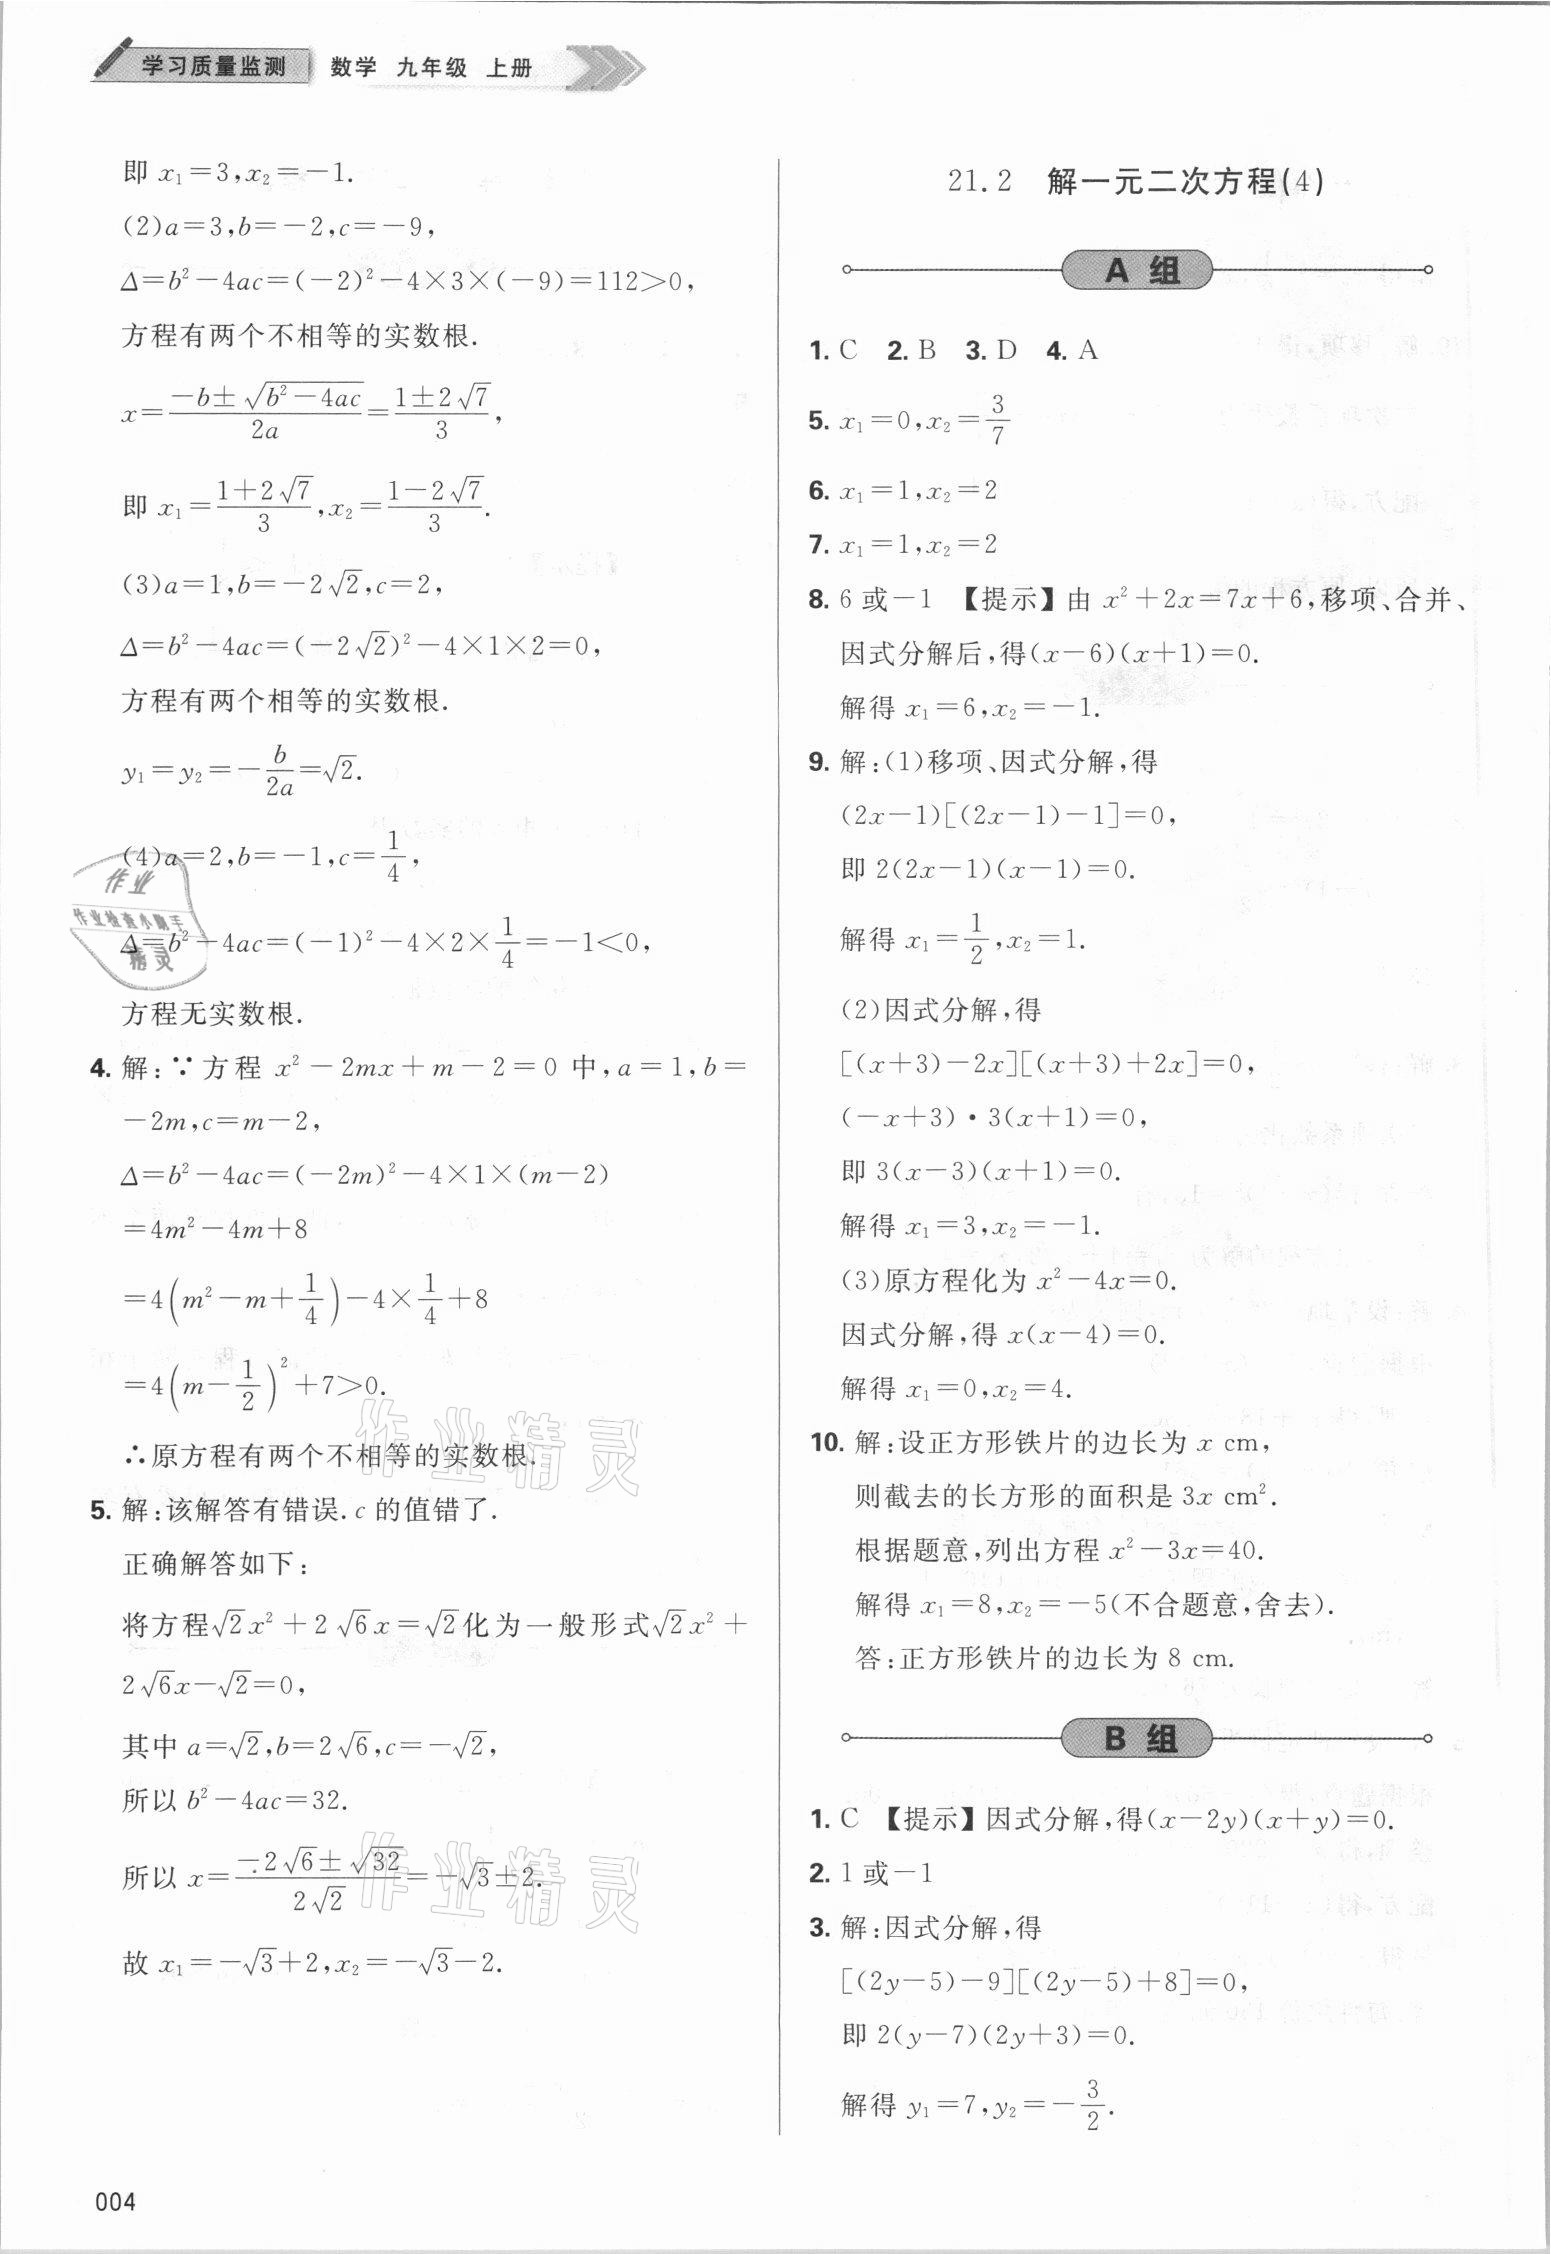 学习质量监测 数学 九年级 上册
即 x₁=3,x₂=-1.
(2)a=3,b=-2,c=-9,
Δ=b²-4ac=(-2)²-4×3×(-9)=112>0,
方程有两个不相等的实数根.
x=(-b±√(b²-4ac))/(2a)=(1±2√7)/3,
即 x₁=(1+2√7)/3,x₂=(1-2√7)/3.
(3)a=1,b=-2√2,c=2,
Δ=b²-4ac=(-2√2)²-4×1×2=0,
方程有两个相等的实数根.
y₁=y₂=-b/(2a)=√2.
(4)a=2,b=-1,c=1/4,
Δ=b²-4ac=(-1)²-4×2×1/4=-1<0,
方程无实数根.
4. 解:∵方程 x²-2mx+m-2=0 中,a=1,b=
-2m,c=m-2,
Δ=b²-4ac=(-2m)²-4×1×(m-2)
=4m²-4m+8
=4(m²-m+1/4)-4×1/4+8
=4(m-1/2)²+7>0.
∴原方程有两个不相等的实数根.
5. 解:该解答有错误.c 的值错了.
正确解答如下:
将方程√2x²+2√6x=√2化为一般形式√2x²+
2√6x-√2=0,
其中 a=√2,b=2√6,c=-√2,
所以 b²-4ac=32.
所以 x=(-2√6±√32)/(2√2)=-√3±2.
故 x₁=-√3+2,x₂=-√3-2.
21.2 解一元二次方程(4)
A 组
1. C 2. B 3. D 4. A
5. x₁=0,x₂=3/7
6. x₁=1,x₂=2
7. x₁=1,x₂=2
8. 6 或-1 【提示】由 x²+2x=7x+6,移项、合并、
因式分解后,得(x-6)(x+1)=0.
解得 x₁=6,x₂=-1.
9. 解:(1)移项、因式分解,得
(2x-1)[(2x-1)-1]=0,
即 2(2x-1)(x-1)=0.
解得 x₁=1/2,x₂=1.
(2)因式分解,得
[(x+3)-2x][(x+3)+2x]=0,
(-x+3)·3(x+1)=0,
即 3(x-3)(x+1)=0.
解得 x₁=3,x₂=-1.
(3)原方程化为 x²-4x=0.
因式分解,得 x(x-4)=0.
解得 x₁=0,x₂=4.
10. 解:设正方形铁片的边长为 x cm,
则截去的长方形的面积是 3x cm².
根据题意,列出方程 x²-3x=40.
解得 x₁=8,x₂=-5(不合题意,舍去).
答:正方形铁片的边长为 8 cm.
B 组
1. C 【提示】因式分解,得(x-2y)(x+y)=0.
2. 1 或-1
3. 解:因式分解,得
[(2y-5)-9][(2y-5)+8]=0,
即 2(y-7)(2y+3)=0.
解得 y₁=7,y₂=-3/2.
004
作业
作业检查小助手
精灵
作业精灵
作业精灵